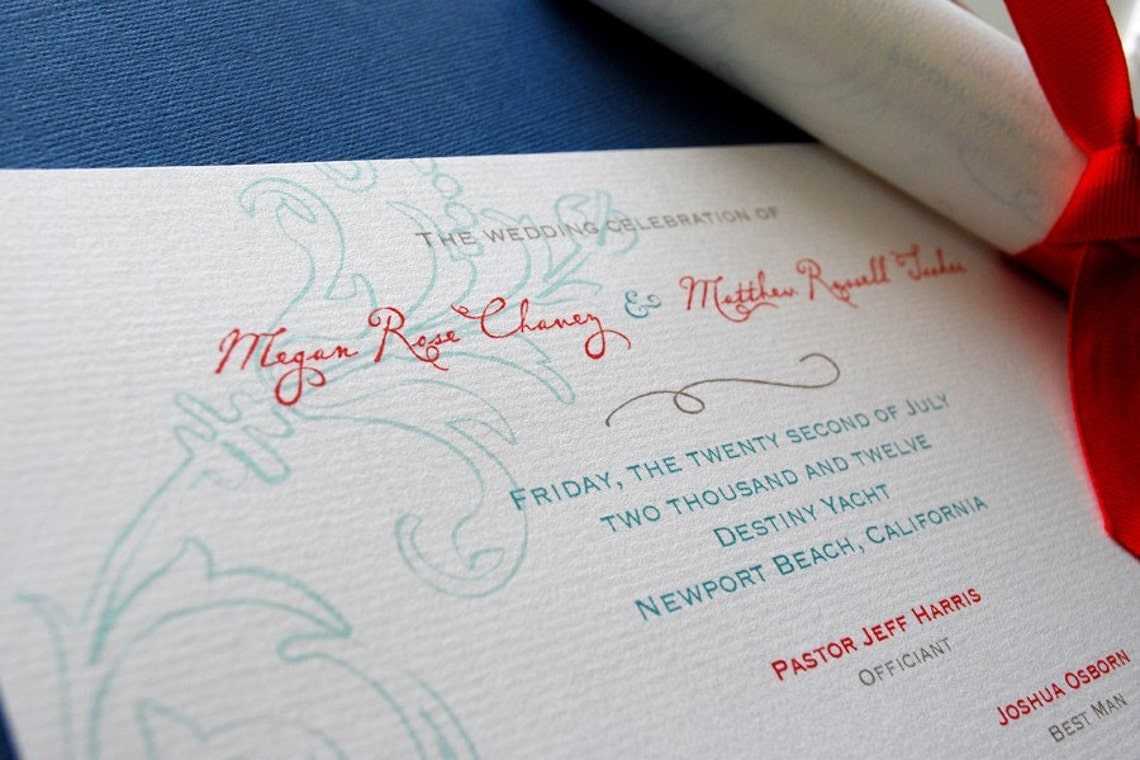 The wedding celebration of
Megan Rose Chaney & Matthew Russell
Friday, the twenty second of July
two thousand and twelve
Destiny Yacht
Newport Beach, California
Pastor Jeff Harris
Officiant
Joshua Osborn
Best Man